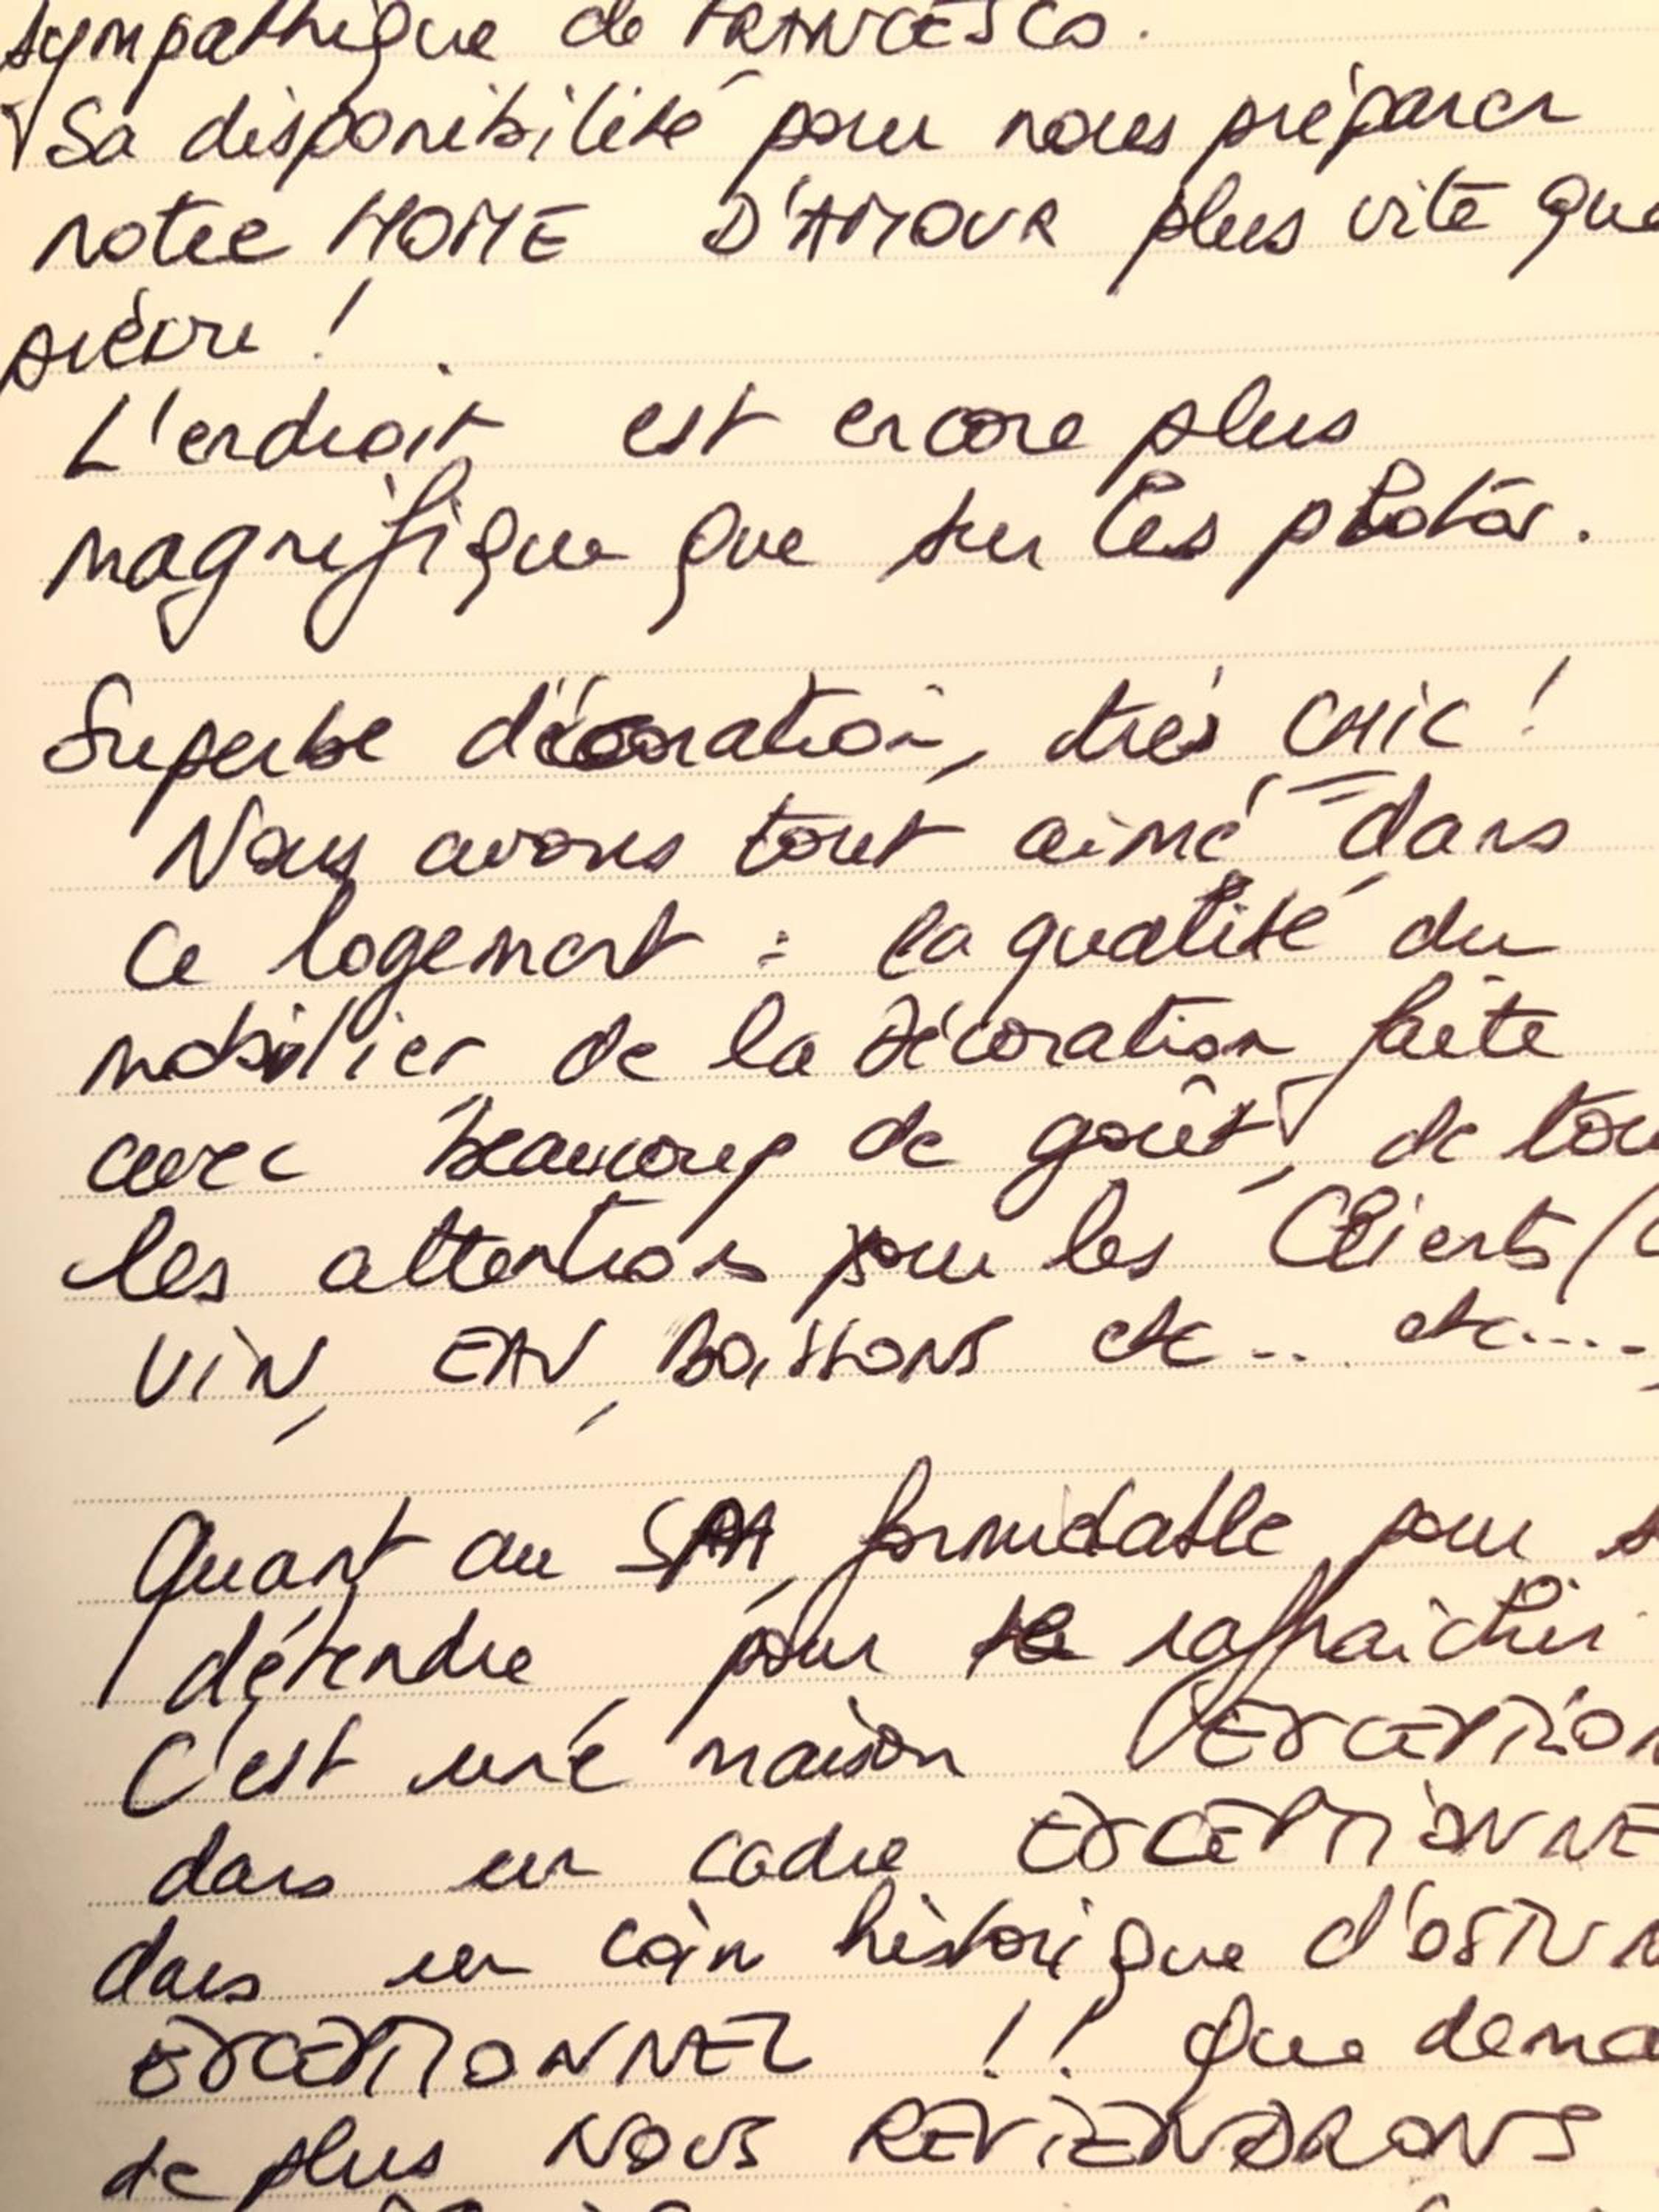 sympathique de FRANCESCO.
Sa disponibilité pour nous préparer
notre HOME D'AMOUR plus vite que
prévu !
L'endroit est encore plus
magnifique que sur les photos.
Superbe décoration, très CHIC !
Nous avons tout aimé dans
ce logement : la qualité du
mobilier de la décoration faite
avec beaucoup de goût, de tou
les attentions pour les Clients (
VIN, EAU, BOISSONS etc... etc....,
Quant au SPA, formidable, pour s
détendre, pour se raffraichir
C'est une maison EXCEPTION
dans un cadre EXCEPTIONNE
dans un coin historique d'OSTUN
EXCEPTIONNEL !! Que dema
de plus NOUS REVIENDRONS